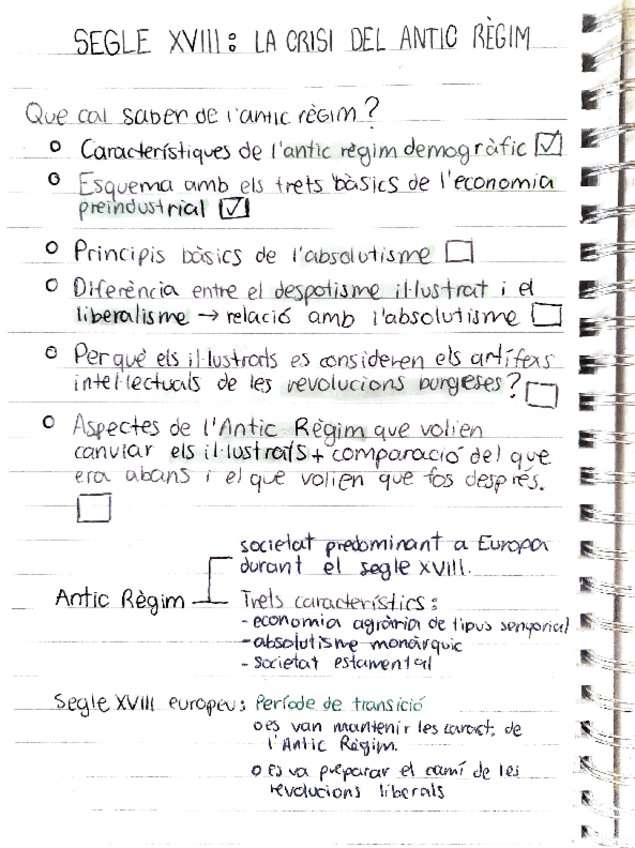 SEGLE XVIII: LA CRISI DEL ANTIC RÈGIM
Que cal saber de l'antic règim?
Característiques de l'antic règim demogràfic
Esquema amb els trets bàsics de l'economia
preindustrial
Principis bàsics de l'absolutisme
Diferència entre el despotisme il·lustrat i el
liberalisme → relació amb l'absolutisme
Perquè els il·lustrats es consideren els artífexs
intel·lectuals de les revolucions burgeses?
Aspectes de l'Antic Règim que volien
canviar els il·lustrats + comparació del que
era abans i el que volien que fos després.
societat predominant a Europa
durant el segle XVIII.
Antic Règim
Trets característics:
- economia agrària de tipus senyorial
- absolutisme monàrquic
- societat estamental
Segle XVIII europeu: Període de transició
es van mantenir les caract. de
l'Antic Règim.
es va preparar el camí de les
revolucions liberals